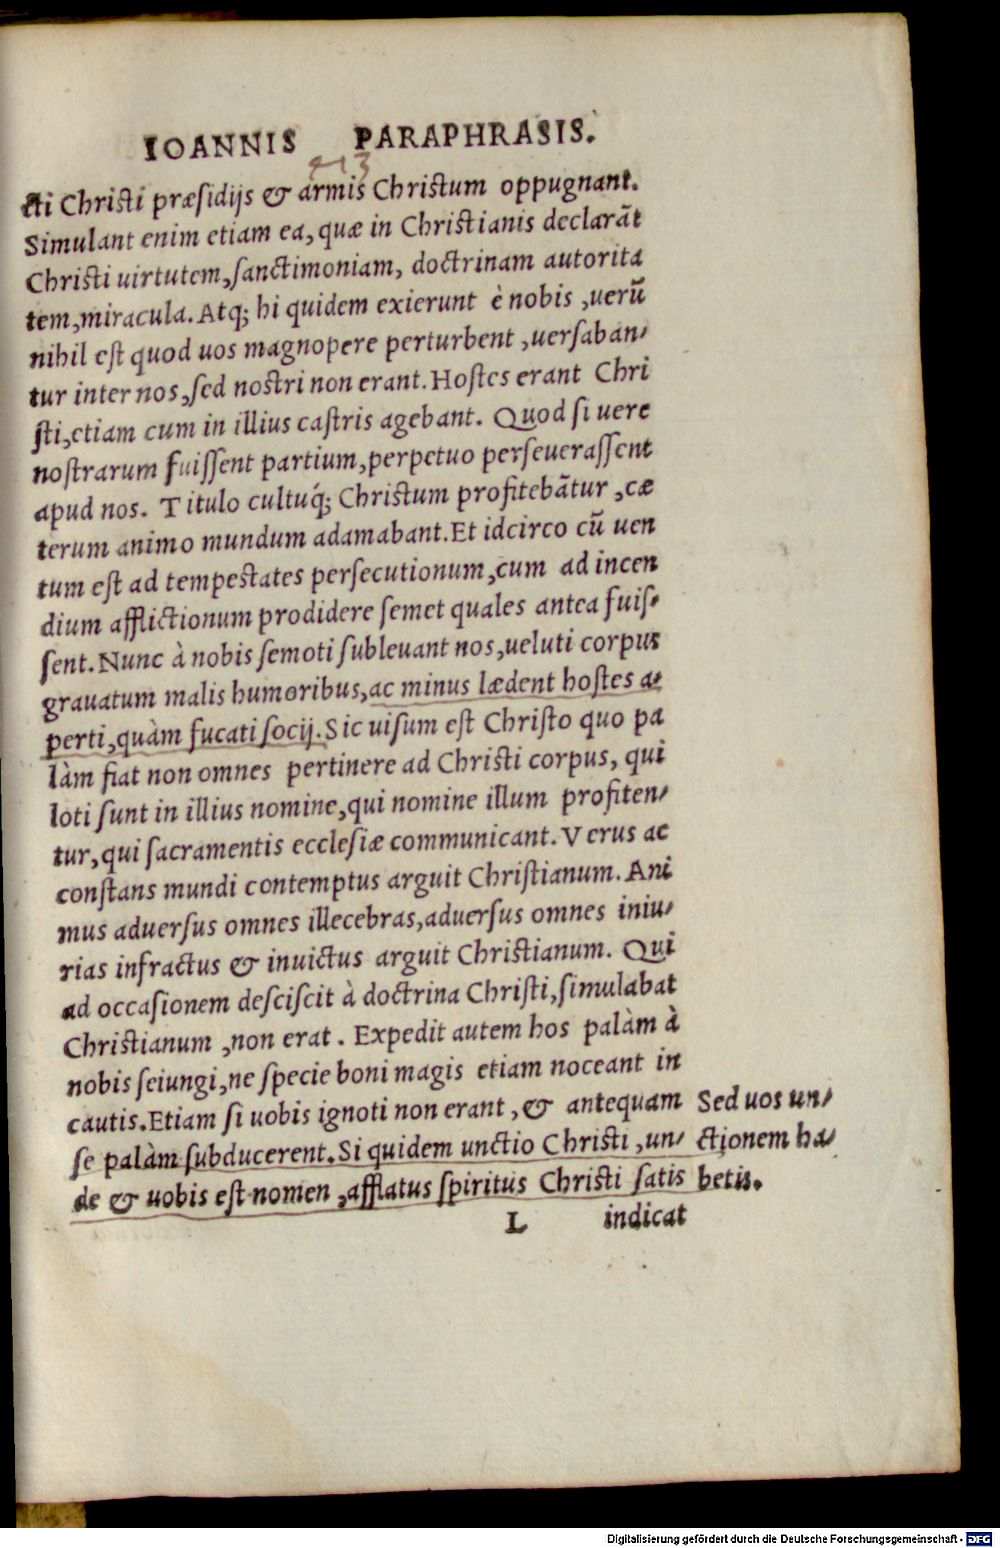 IOANNIS PARAPHRASIS.
413
cti Christi præsidijs & armis Christum oppugnant.
Simulant enim etiam ea, quæ in Christianis declarāt
Christi uirtutem, sanctimoniam, doctrinam autorita
tem, miracula. Atq; hi quidem exierunt è nobis, uerū
nihil est quod uos magnopere perturbent, uersaban-
tur inter nos, sed nostri non erant. Hostes erant Chri
sti, etiam cum in illius castris agebant. Quod si uere
nostrarum fuissent partium, perpetuo perseuerassent
apud nos. Titulo cultuq́; Christum profitebātur, cæ
terum animo mundum adamabant. Et idcirco cū uen
tum est ad tempestates persecutionum, cum ad incen
dium afflictionum prodidere semet quales antea fuis-
sent. Nunc à nobis semoti subleuant nos, ueluti corpus
grauatum malis humoribus, ac minus lædent hostes a-
perti, quàm fucati socij. Sic uisum est Christo quo pa
làm fiat non omnes pertinere ad Christi corpus, qui
loti sunt in illius nomine, qui nomine illum profiten-
tur, qui sacramentis ecclesiæ communicant. Verus ac
constans mundi contemptus arguit Christianum. Ani
mus aduersus omnes illecebras, aduersus omnes iniu-
rias infractus & inuictus arguit Christianum. Qui
ad occasionem desciscit à doctrina Christi, simulabat
Christianum, non erat. Expedit autem hos palàm à
nobis seiungi, ne specie boni magis etiam noceant in
cautis. Etiam si uobis ignoti non erant, & antequam
se palàm subducerent. Si quidem unctio Christi, un-
de & uobis est nomen, afflatus spiritus Christi satis
Sed uos un-
ctionem ha-
betis.
L indicat
Digitalisierung gefördert durch die Deutsche Forschungsgemeinschaft - DFG